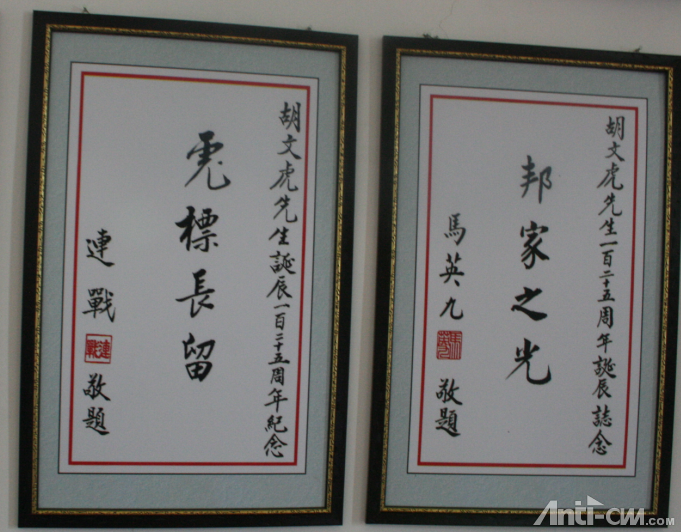 胡文虎先生誕辰一百二十五周年紀念
虎標長留
連戰
連戰
敬題
胡文虎先生一百二十五周年誕辰誌念
邦家之光
馬英九
敬題
Anti-cm.com